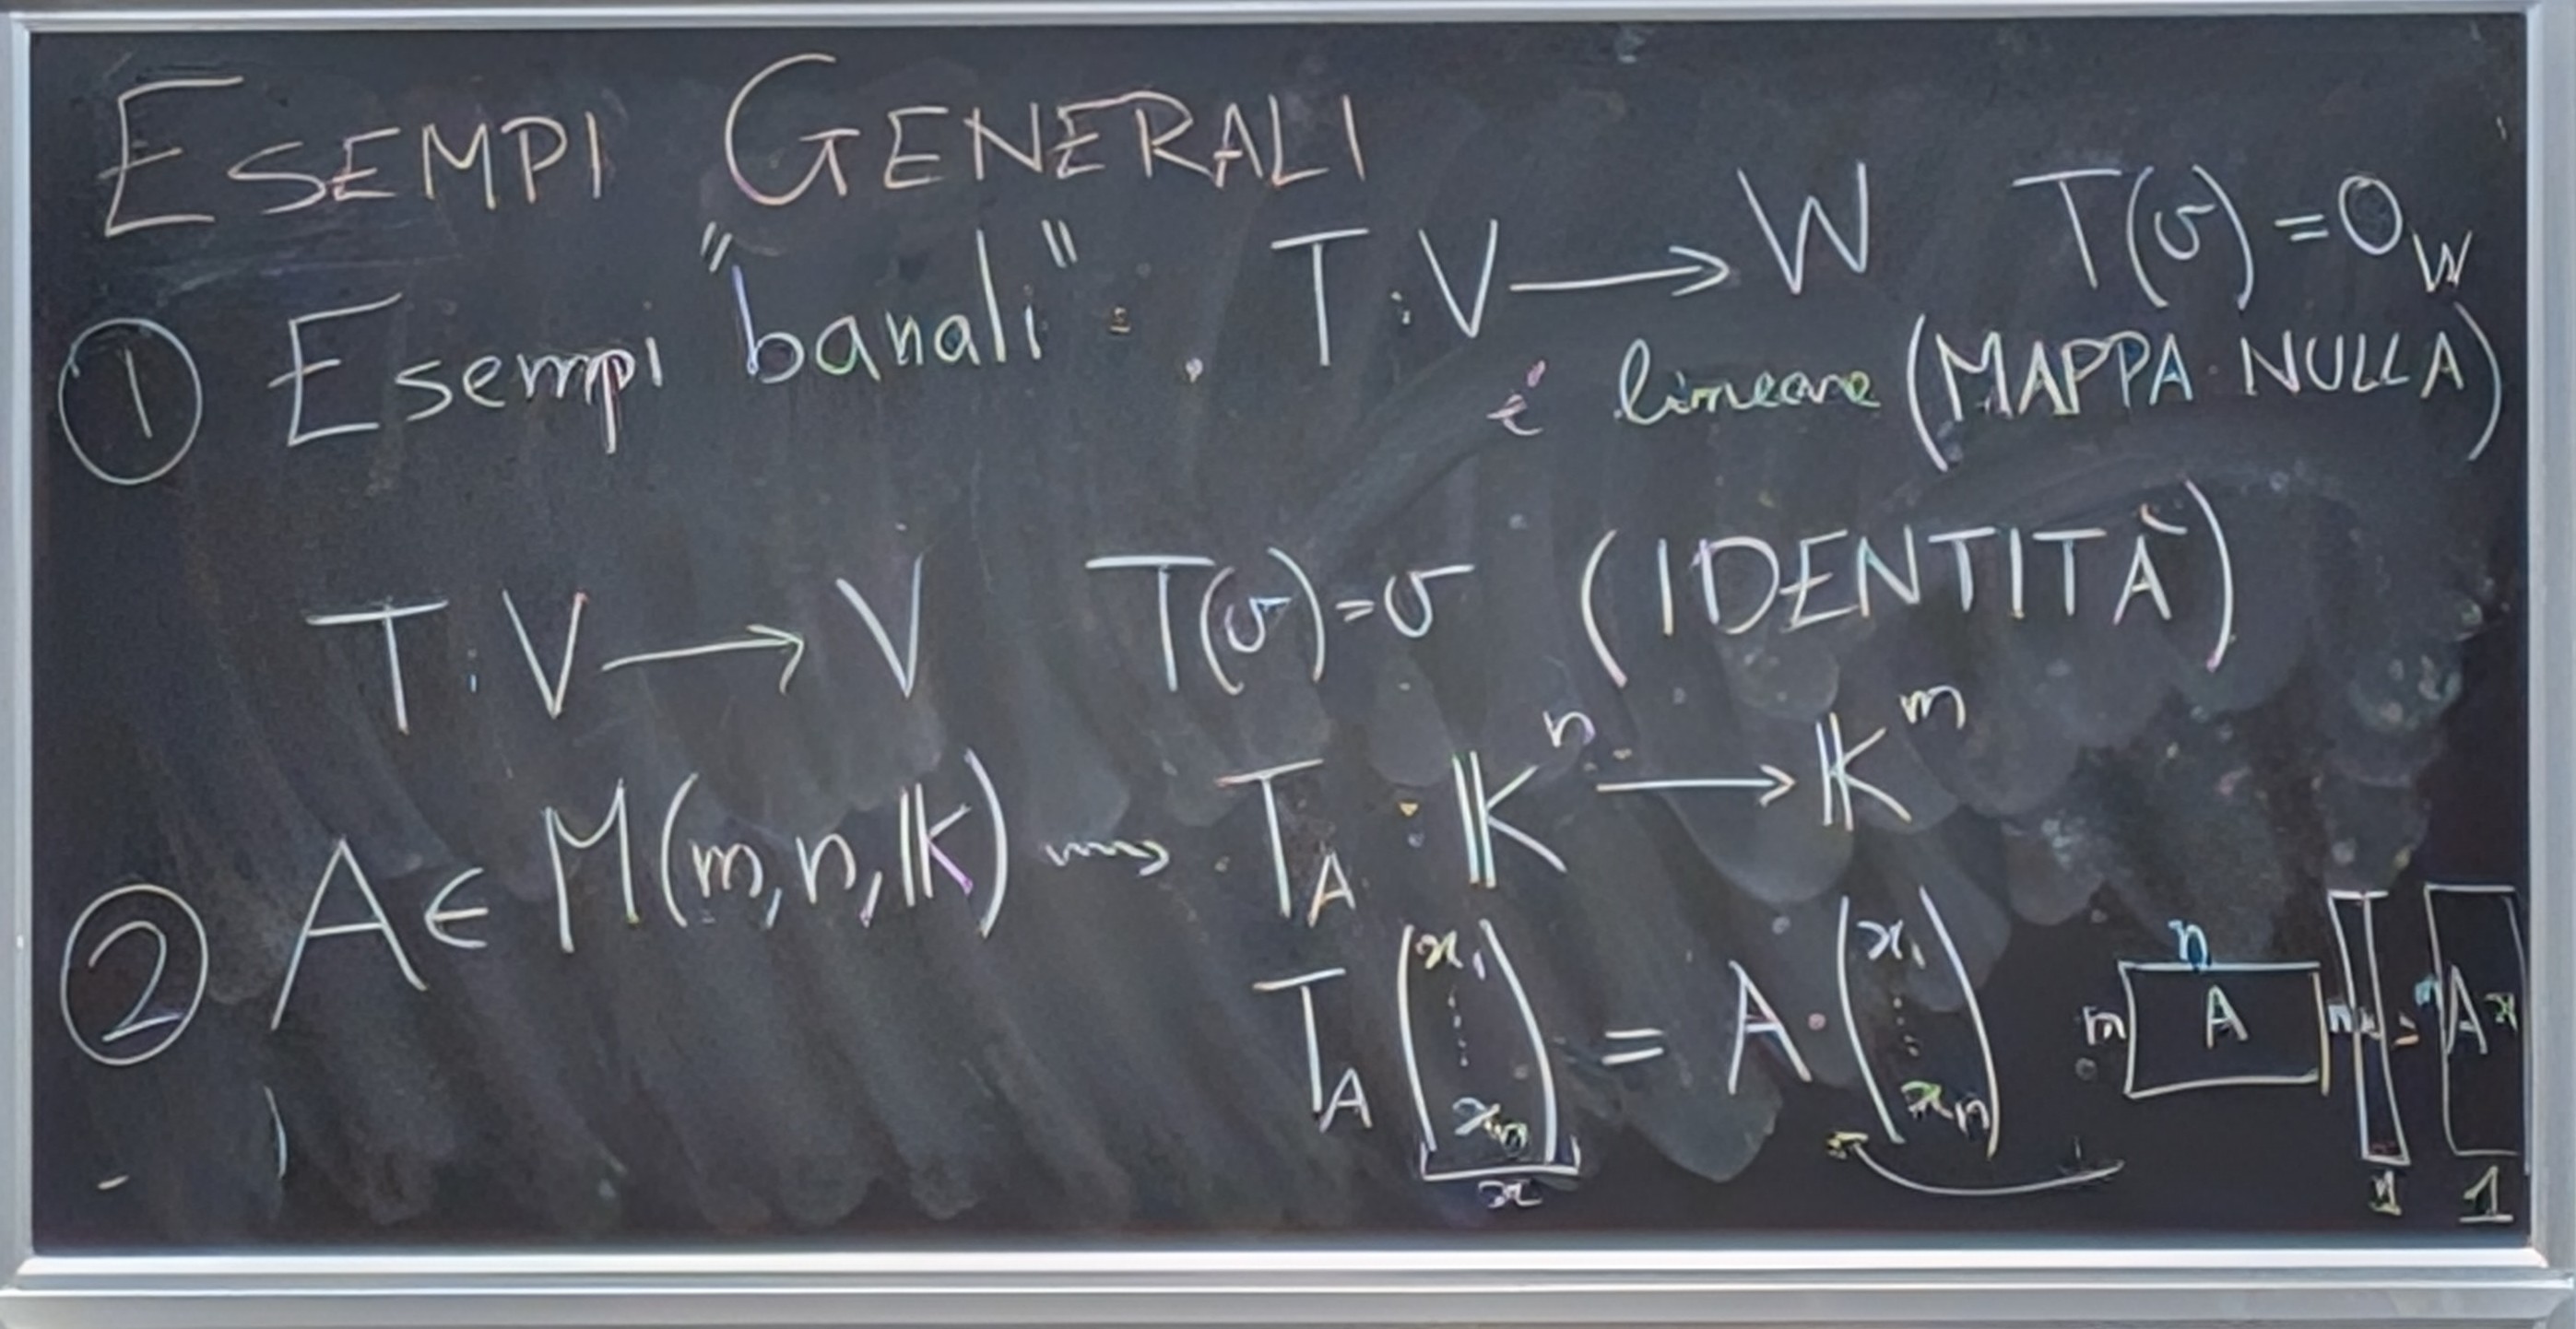 ESEMPI GENERALI
① Esempi "banali": . T: V → W T(v) = 0_W
è lineare (MAPPA NULLA)
T: V → V T(v) = v (IDENTITÀ)
② A ∈ M(m, n, 𝕂) ⇝ T_A : 𝕂^n → 𝕂^m
T_A (x_1 ⋮ x_n) = A · (x_1 ⋮ x_n)
x
n
m A n = m A x
1 1